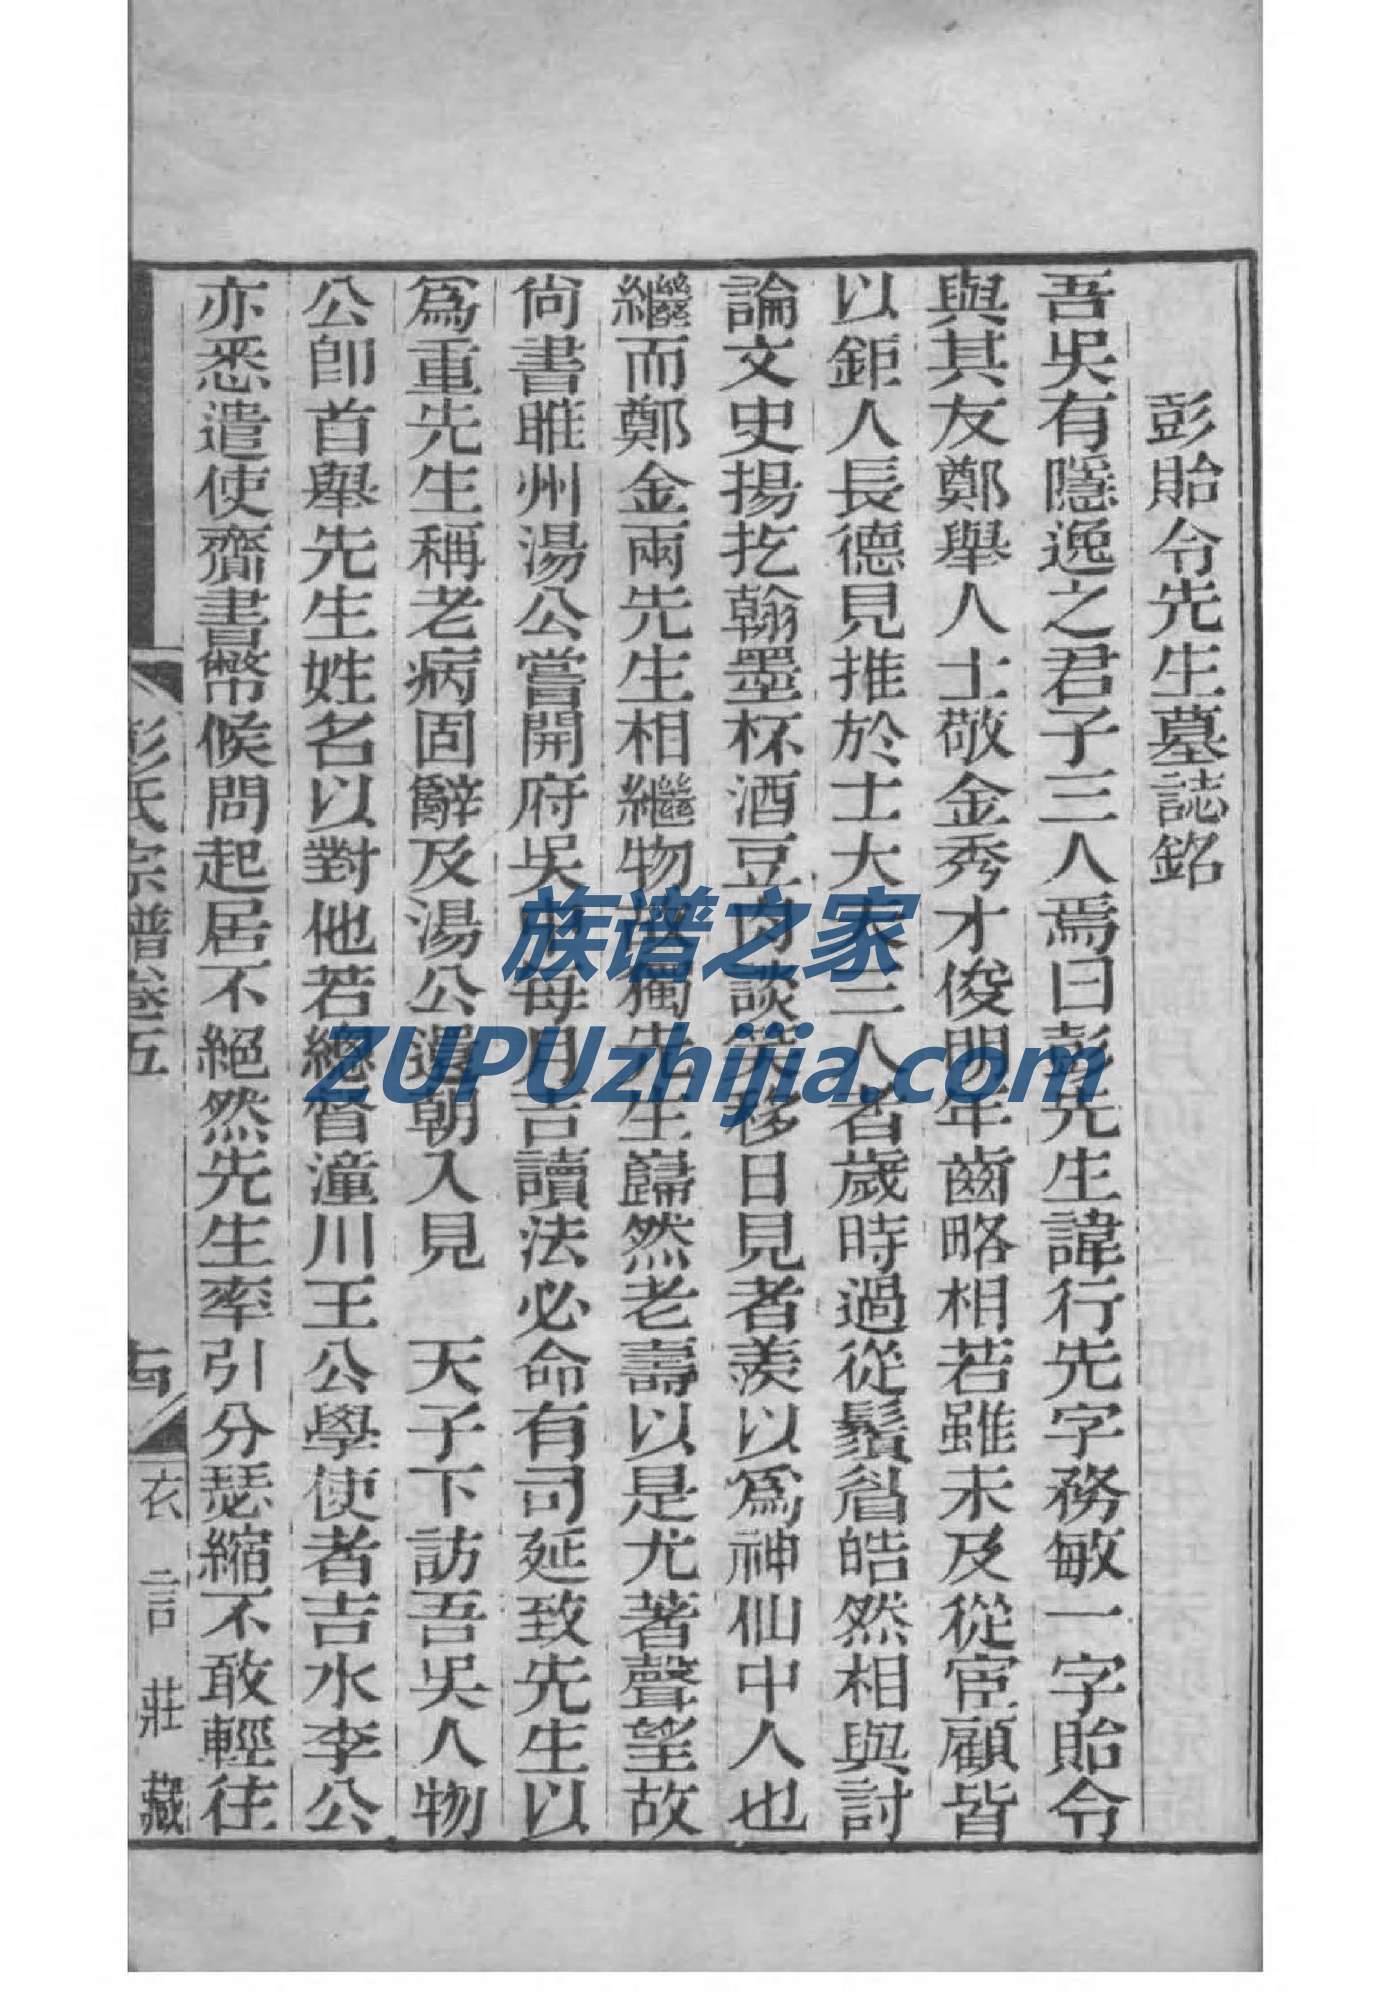 彭貽令先生墓誌銘
吾吳有隱逸之君子三人焉曰彭先生諱行先字務敏一字貽令
與其友鄭舉人士敬金秀才俊明年齒略相若雖未及從宦顧皆
以鉅人長德見推於士大夫三人者歲時過從鬚眉皓然相與討
論文史揚扢翰墨杯酒豆肉談笑移日見者羨以爲神仙中人也
繼而鄭金兩先生相繼物故獨先生巋然老壽以是尤著聲望故
尚書睢州湯公嘗開府吳中每月吉讀法必命有司延致先生以
爲重先生稱老病固辭及湯公還朝入見　天子下訪吾吳人物
公卽首舉先生姓名以對他若總督潼川王公學使者吉水李公
亦悉遣使齎書幣候問起居不絕然先生率引分瑟縮不敢輕往
彭氏宗譜卷五
衣言莊藏
族谱之家
ZUPUzhijia.com